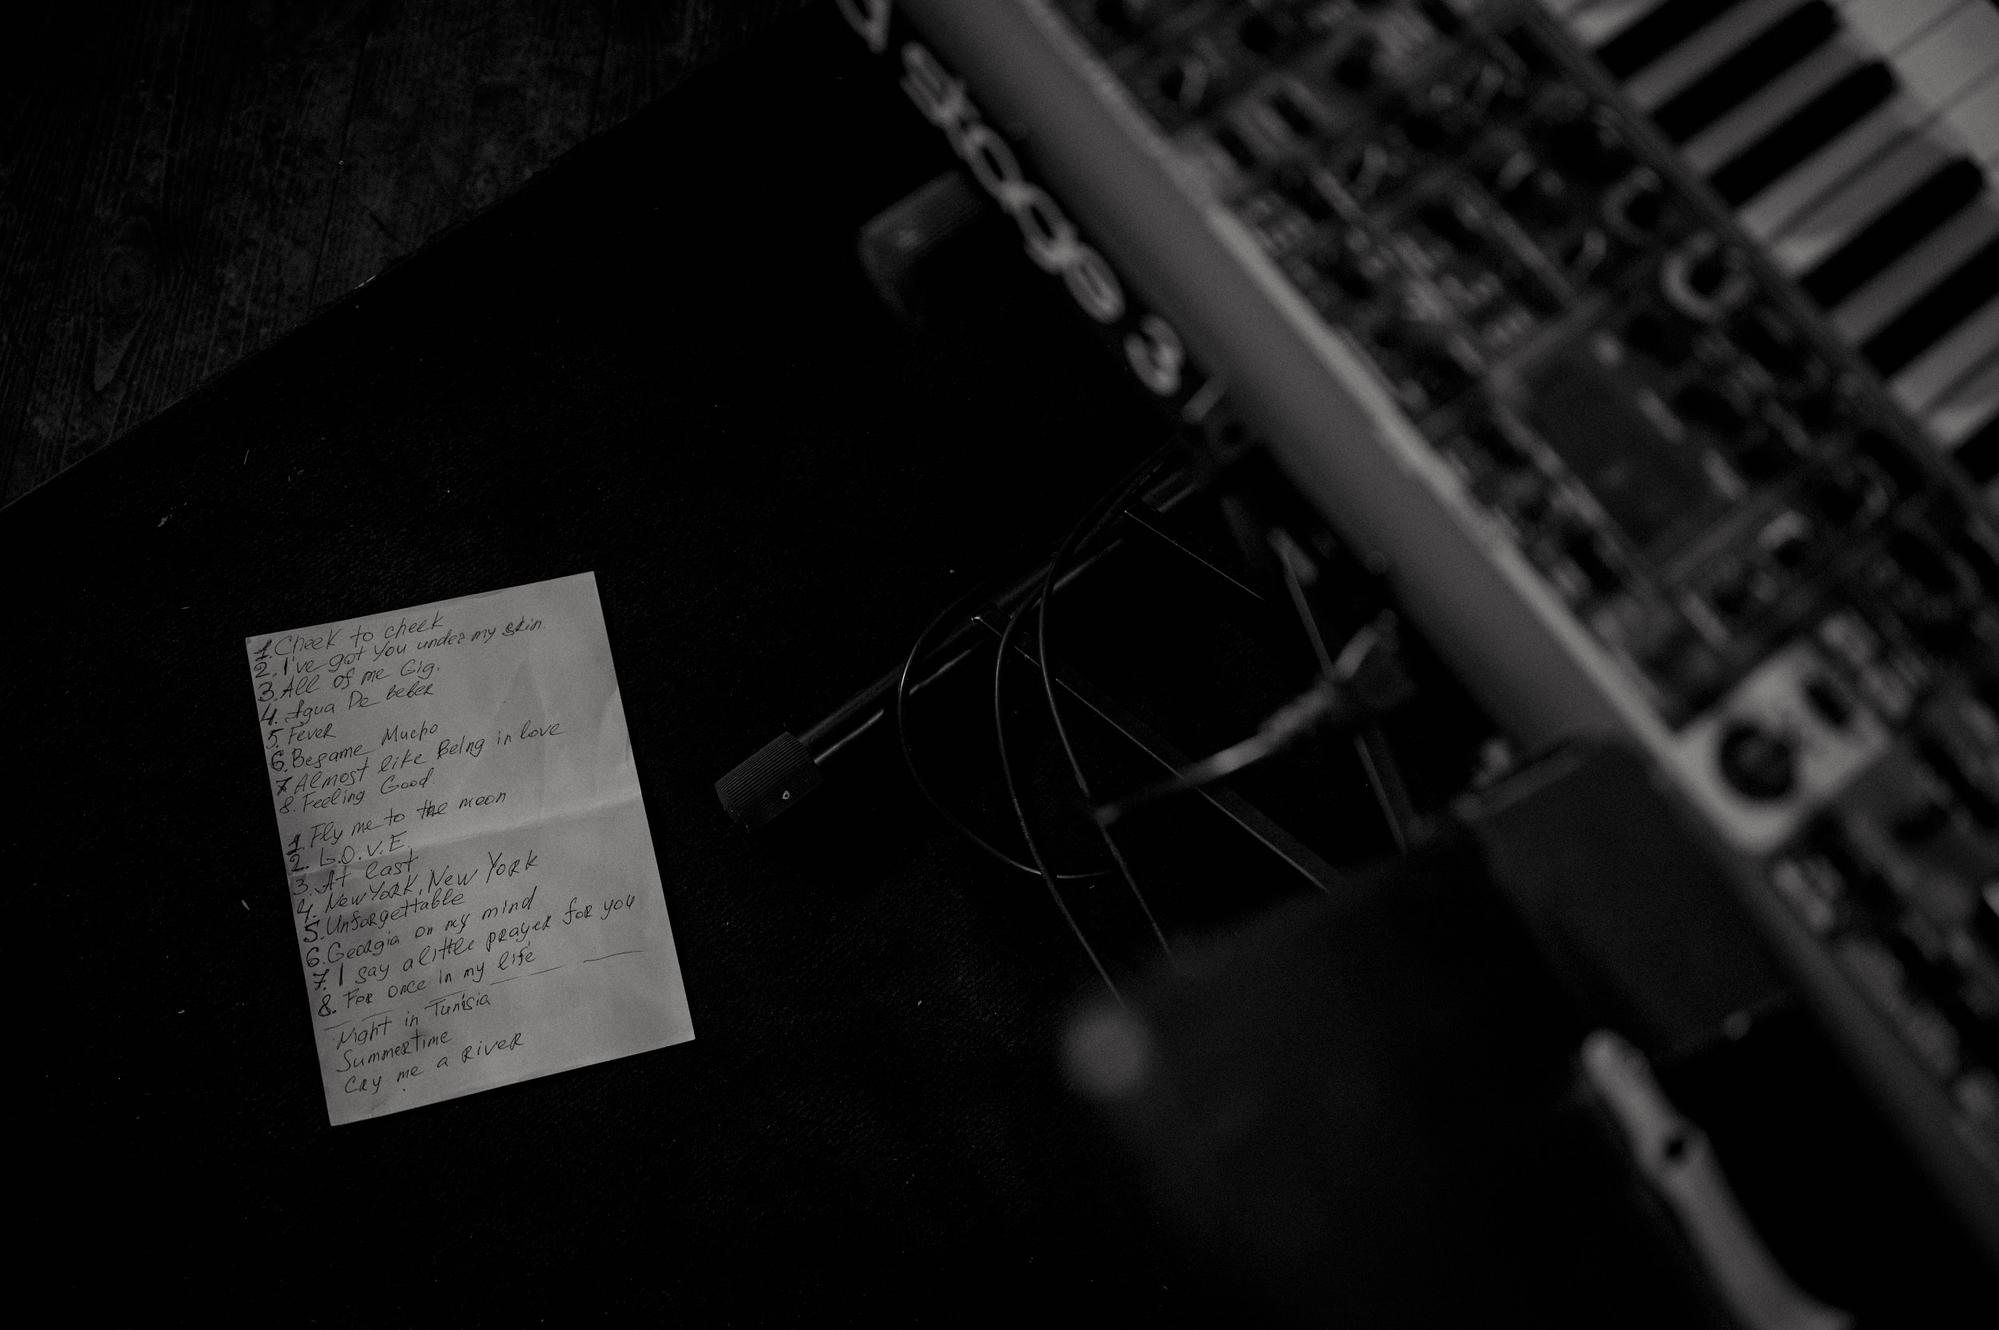 stage 3
1. Cheek to cheek
2. I've got you under my skin
3. All of me Gig.
4. Agua De beber
5. Fever
6. Besame Mucho
7. Almost like Being in love
8. Feeling Good
1. Fly me to the moon
2. L.O.V.E.
3. At last
4. New York, New York
5. Unforgettable
6. Georgia on my mind
7. I say a little prayer for you
8. For once in my life
Night in Tunisia
Summertime
Cry me a River